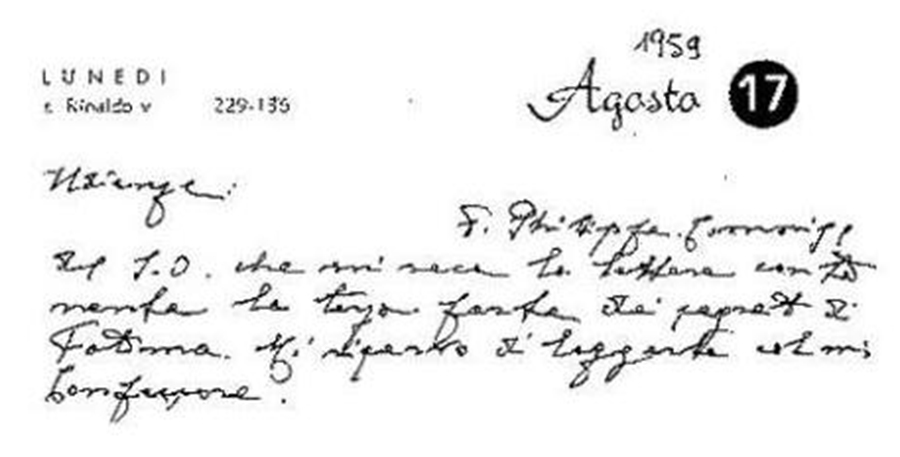 1959
LUNEDI Agosto 17
s. Rinaldo v 229-136
Udienze:
P. Philippe. Commiss.
del S.O. che mi reca la lettera conte
nente la terza parte dei segreti di
Fatima. Mi riservo di leggerla col mio
Confessore.